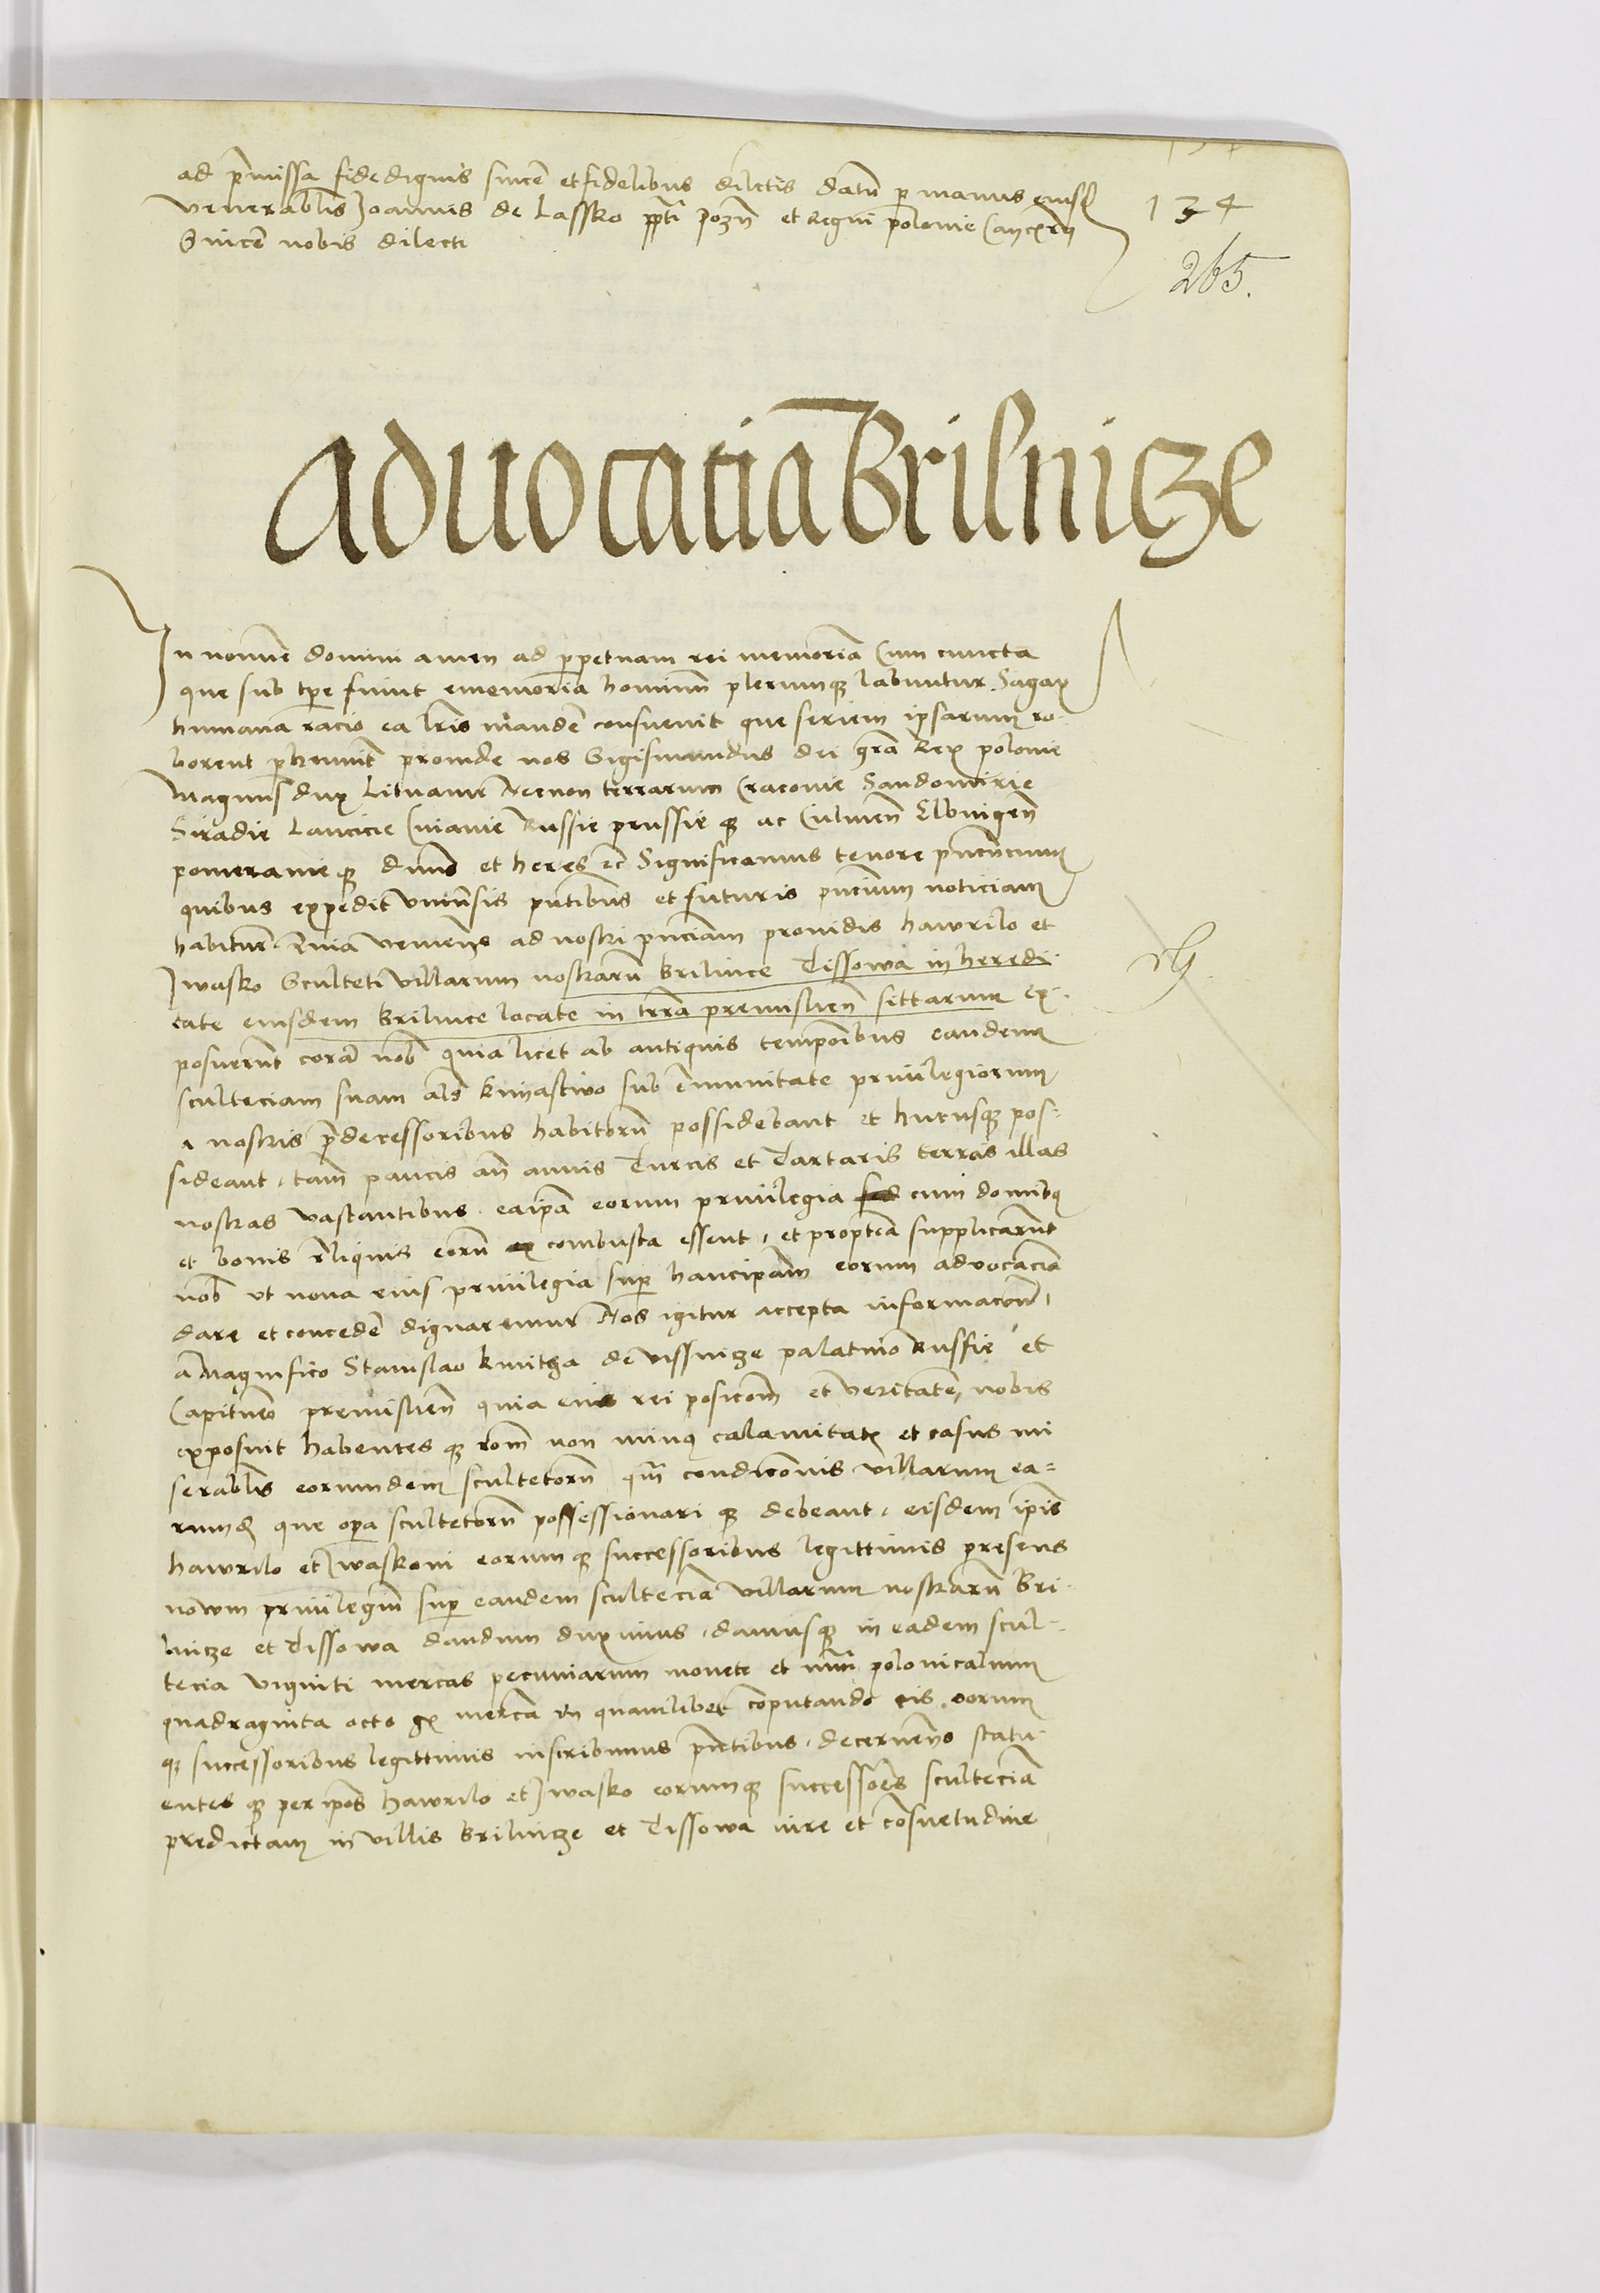 ad pmissa fidedignis since et fidelibus dilctis datu p manus eiusd
venerablis Joannis de Lassko ppti pozn et Regni polonie Canc
Since nobis dilecti
134
265.
Aduocatia Brilnicze
In nomine domini amen ad perpetuam rei memoria Cum cuncta
que sub tpe fiunt ememoria hominum plerumq labuntur Sagax
humana racio ea lris mandare consueuit que seriem ipsarum ro
borent phennit proinde nos Sigismundus dei gra Rex polonie
Magnus dux Lituanie Necnon terrarum Cracouie Sandomirie
Siradie Lancicie Cuiauie Russie prussie q ac Culmen Elbingen
pomeranie q dnus et heres etc Significamus tenore pntium
quibus expedit vniuersis pntibus et futuris pntium noticiam
habitur Quia veniens ad nostri pnciam prouidis hawrilo et
Iwasko Sculteti villarum nostraru brilince Tissowa in heredi
tate eiusdem brilince locate in terra premislien sittarum Ex
posuerunt cora nob quia licet ab antiquis temporibus eandem
sculteciam suam als kniastwo sub emunitate priuilegiorum
a nostris pdecessoribus habitoru possidebant et hucusq pos
sideant tam paucis an annis Turcis et Tartaris terras illas
nostras vastantibus ea ipa eorum priuilegia cum domibq
et bonis reliquis eoru combusta essent et proptea supplicarunt
nob vt noua eius priuilegia sup hancipam eorum aduocacia
dare et concede dignaremur Nos igitur accepta informacone
a Magnifico Stanislao kmitha de vissnicze palatino Russie et
Capitneo premislien quia eius rei posicom et veritatem nobis
exposuit habentes q rom non minq calamitate et casus mi
serablis eorumdem scultetoru qm condicionis villarum ea
rumd que opa scultetoru possessionari q debeant eisdem ipis
hawrilo et Iwaskoni eorum q successoribus legittimis presens
nowm priuilegiu sup eandem scultecia villarum nostraru Bri
lnicze et Tissowa dandum duximus damusq in eadem scul
tecia viginti mercas pecuniarum monete et numi polonicalium
quadraginta octo gs merca in quamlibet computando eis eorum
q successoribus legittimis inscribimus pntibus decernens statu
entes q per ipos hawrilo et Iwasko eorumq successores scultecia
predictam in villis brilnicze et Tissowa iure et cosuetudine